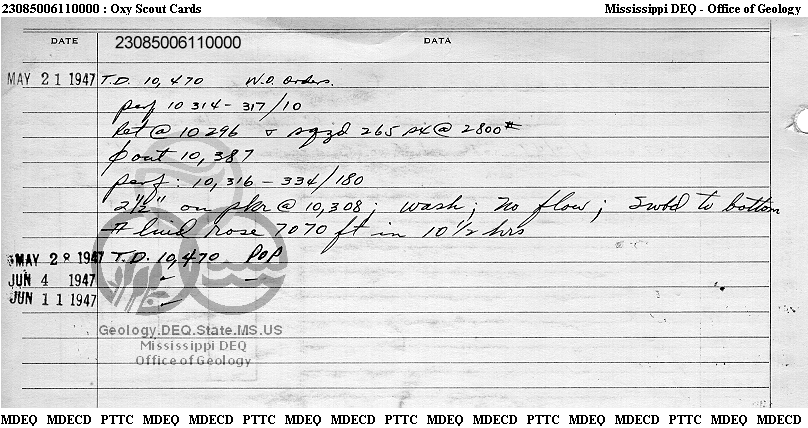 23085006110000 : Oxy Scout Cards Mississippi DEQ - Office of Geology
DATE 23085006110000 DATA
MAY 21 1947 T.D. 10,470 W.O. orders.
perf 10 314 - 317/10
Ret @ 10 296 & sqzd 265 sx @ 2800#
out 10,387
perf: 10,316 - 334/180
2 1/2" on pkr @ 10,308; wash; no flow; Swbd to bottom
Fluid rose 7070 ft in 10 1/2 hrs
MAY 28 1947 T.D. 10,470 POP
JUN 4 1947 " —
JUN 11 1947 "
Geology.DEQ.State.MS.US
Mississippi DEQ
Office of Geology
MDEQ MDECD PTTC MDEQ MDECD PTTC MDEQ MDECD PTTC MDEQ MDECD PTTC MDEQ MDECD PTTC MDEQ MDECD